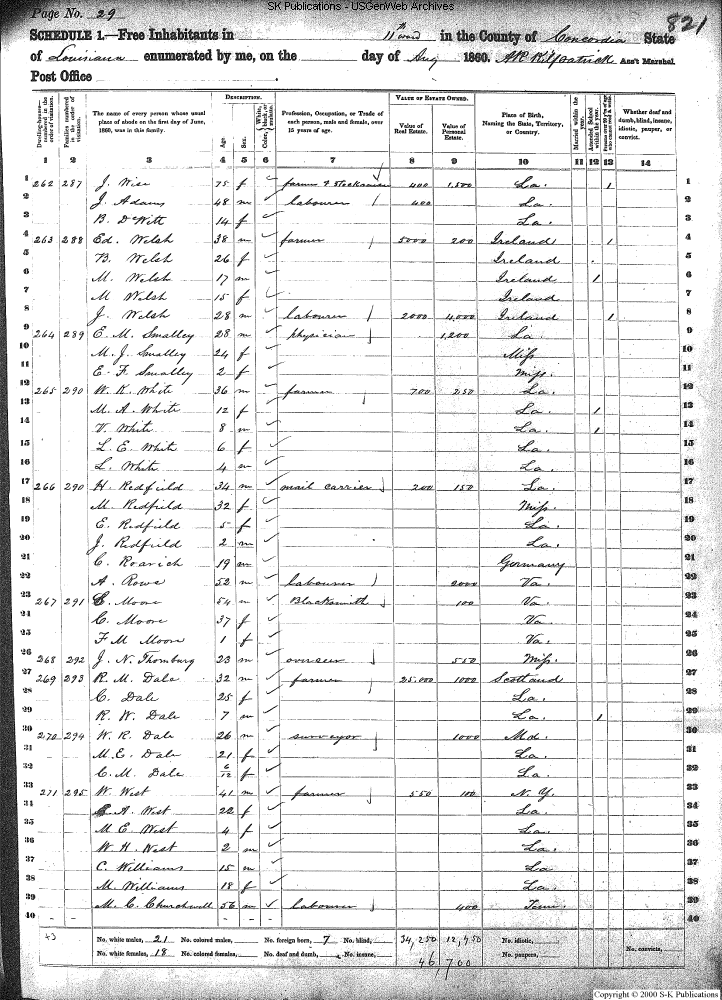 SK Publications - USGenWeb Archives
Page No. 29
821
SCHEDULE 1.—Free Inhabitants in 11th Ward in the County of Concordia State
of Louisiana enumerated by me, on the day of Aug 1860. Kilpatrick Ass't Marshal.
Post Office
Dwelling-houses— numbered in the order of visitation.
Families numbered in the order of visitation.
The name of every person whose usual place of abode on the first day of June, 1860, was in this family.
DESCRIPTION.
Age
Sex.
White, black, or mulatto.
Color,
Profession, Occupation, or Trade of each person, male and female, over 15 years of age.
VALUE OF ESTATE OWNED.
Value of Real Estate.
Value of Personal Estate.
Place of Birth, Naming the State, Territory, or Country.
Married within the year.
Attended School within the year.
Whether deaf and dumb, blind, insane, idiotic, pauper, or convict.
1 2 3 4 5 6 7 8 9 10 11 12 13 14
1 262 287 J. Wise 75 f farmer & 400 1,500 La. 1 1
2 J. Adams 48 m labourer 400 La. 2
3 B. DeWitt 14 f La. 3
4 263 288 Ed. Welsh 38 m farmer 5000 200 Ireland 1 4
5 B. Welsh 26 f Ireland 5
6 M. Welsh 17 m Ireland 1 6
7 M Welsh 15 f Ireland 7
8 J. Welsh 28 m labourer 2000 4,000 Ireland 1 8
9 264 289 E. M. Smalley 28 m physician 1,200 La. 9
10 M. J. Smalley 24 f Miss 10
11 E. F. Smalley 2 f Miss. 11
12 265 290 W. K. White 36 m farmer 700 250 La. 12
13 M. A. White 12 f La. 1 13
14 V. White 8 m La. 1 14
15 L. E. White 6 f La. 15
16 L. White 4 m La. 16
17 266 290 H. Redfield 34 m mail carrier 200 150 La. 17
18 M. Redfield 32 f Miss. 18
19 E. Redfield 5 f La. 19
20 J. Redfield 2 m La. 20
21 C. Roarich 19 m Germany 21
22 A. Rowe 52 m labourer 2000 Va. 22
23 267 291 Moore 54 m Blacksmith 100 Va. 23
24 C. Moore 37 f Va. 24
25 F M Moore 1 f Va. 25
26 268 292 J. N. Thornburg 23 m overseer 550 Miss. 26
27 269 293 R. M. Dale 32 m farmer 25.000 1000 Scotland 27
28 C. Dale 25 f La. 28
29 R. W. Dale 7 m La. 1 29
30 270 294 W. R. Dale 26 m surveyor 1000 Md. 30
31 M. E. Dale 21 f La. 31
32 C. M. Dale 6/12 f La. 32
33 271 295 W. West 41 m farmer 550 100 N. Y. 33
34 A. West 22 f La. 34
35 M E West 4 f La. 35
36 W H West 2 m La. 36
37 C. Williams 15 m La 37
38 M. Williams 18 f La. 38
39 M. C. Churchwell 56 m labourer 400 Tenn. 39
40 40
No. white males, 21 No. colored males, No. foreign born, 7 No. blind, 34,250 12,450 No. idiotic,
No. white females, 18 No. colored females, No. deaf and dumb, No. insane, 46,700 No. paupers, No. convicts,
Copyright © 2000 S-K Publications